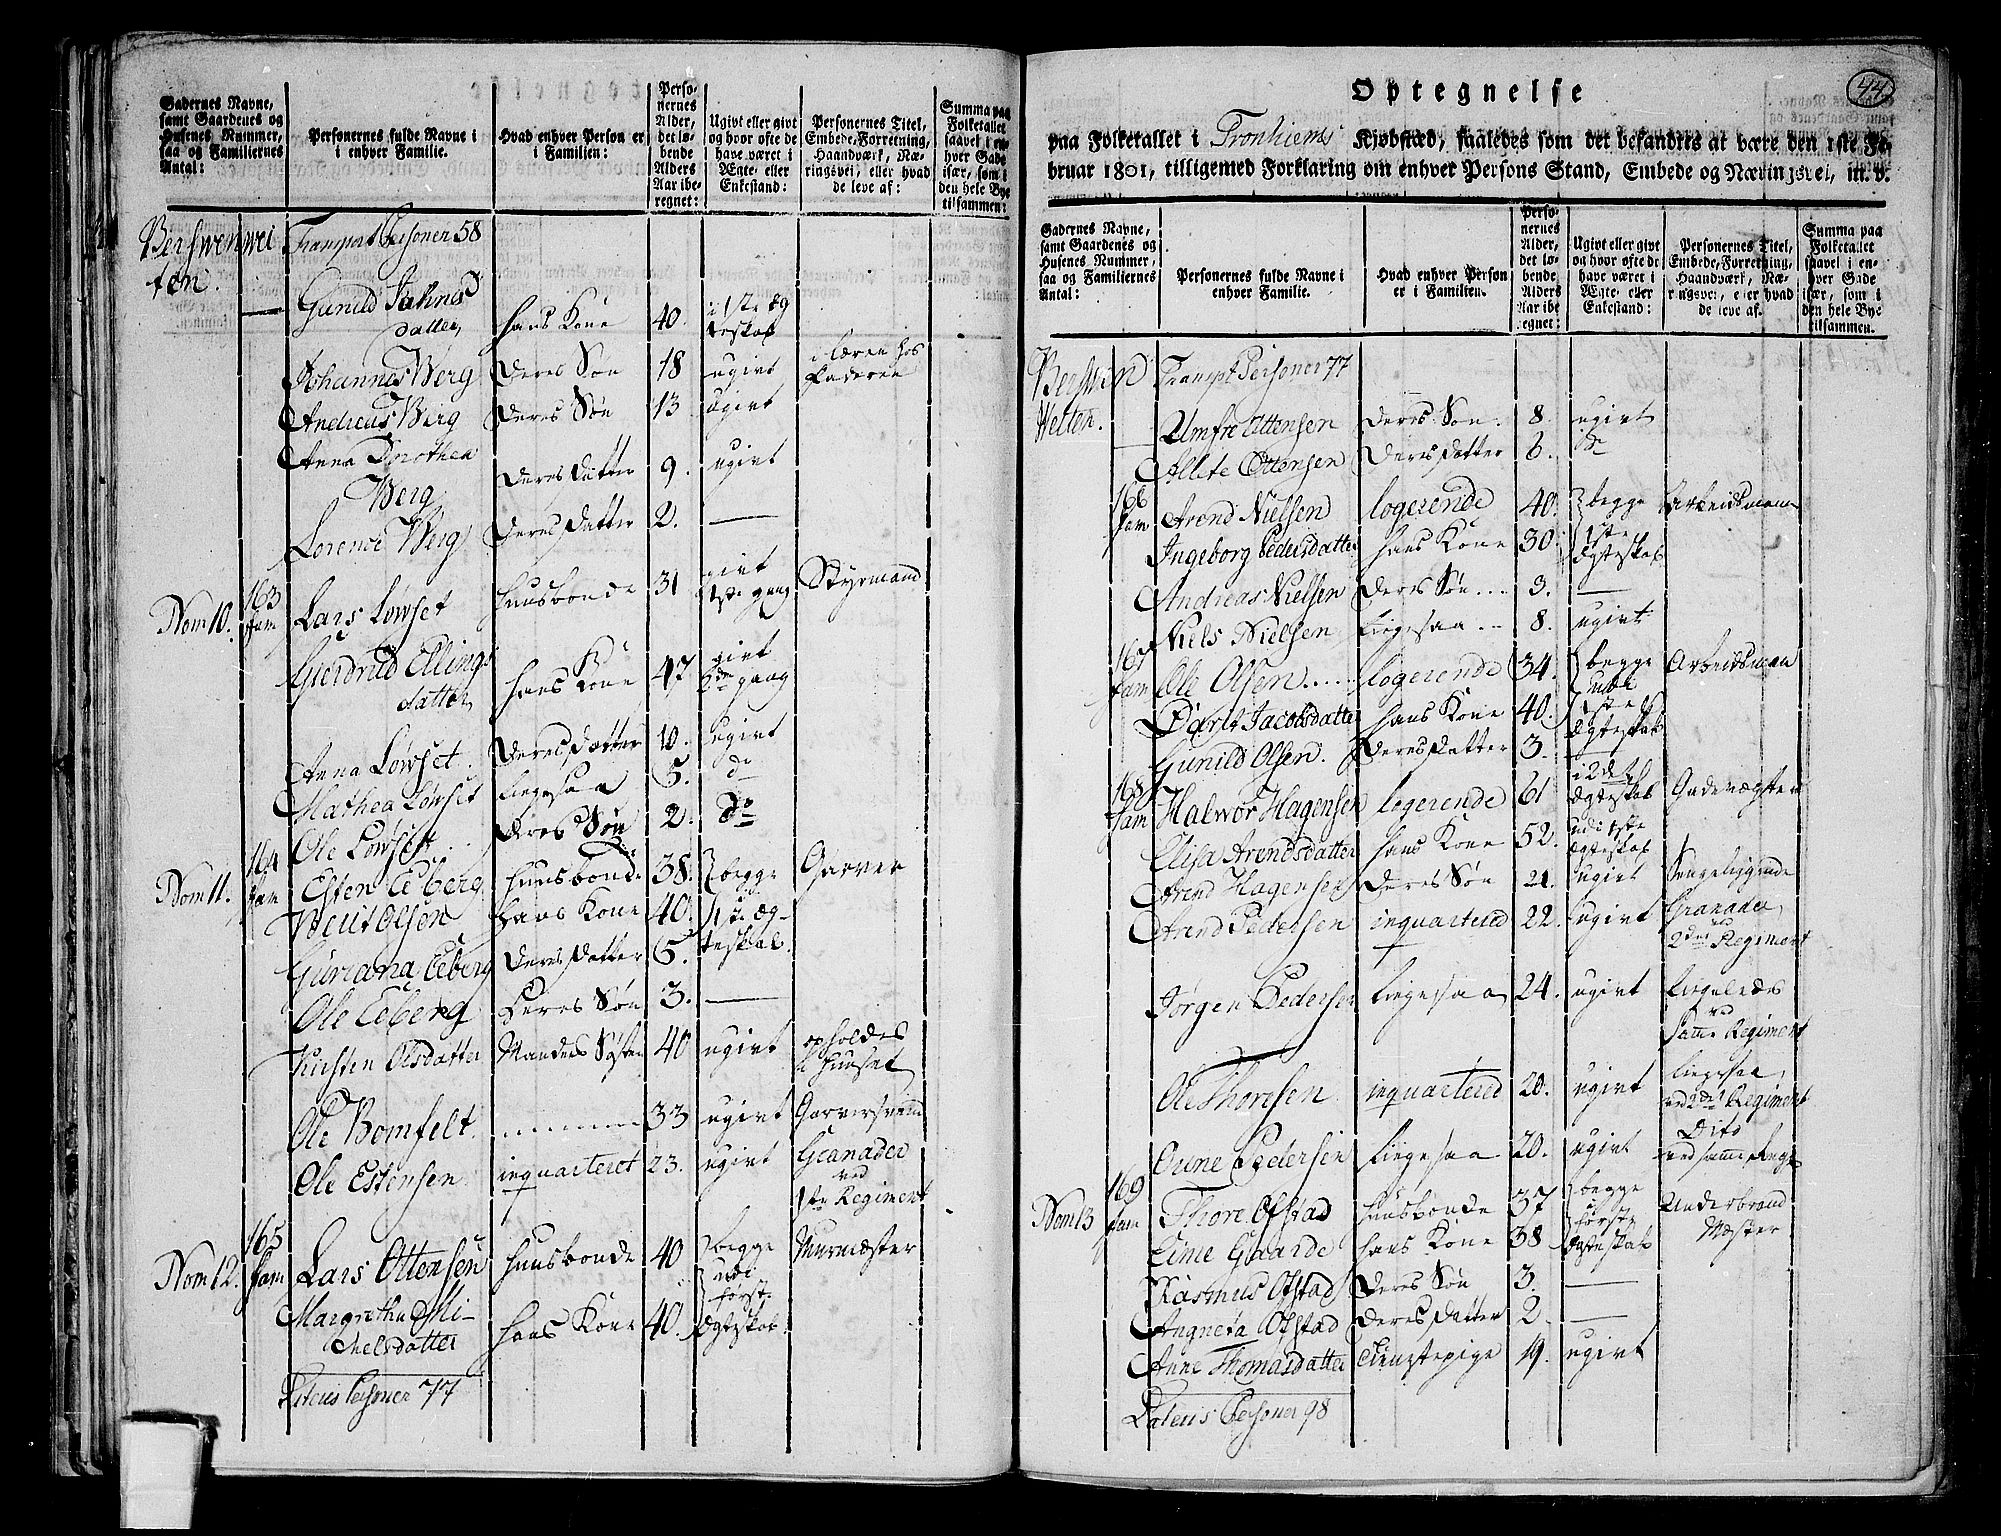 Gadernes Navne, samt Gaardenes og Husenes Nummer, saa og Familiernes Antal:
Personernes fulde Navne i i enhver Familie.
Hvad enhver Person er i Familien:
Personernes Alder, det løbende Alders Aar iberegnet:
Ugivt eller givt og hvor ofte de have været i Ægte- eller Enkestand:
Personernes Titel, Embede, Forretning, Haandværk, Næringsvei, eller hvad de leve af:
Summa paa Folketallet saavel i enhver Gade især, som i den hele Bye tilsammen:
Transport Personer 58
Gunild Jahnsdatter hans Kone 40. i 1ste Ægteskab
Johannes Berg Deres Søn 18 ugivt i læren hos Faderen
Andreas Berg Deres Søn 13 ugivt
Anna Dorothea Berg Deres Datter 9. ugivt
Lorence Berg Deres Datter 2. —
Nom 10. 163 fam Lars Løwset Huusbonde 31 givt 1ste gang Styrmand
Giertrud Ellingsdatter hans Kone 47 givt 2de gang
Anna Løwset. Deres Datter 10. ugivt
Mathea Løwset Ligesaa 5. do
Ole Løwset. Deres Søn 2. do
Nom 11. 164 fam Esten Eeberg Huusbonde 38. begge Garver
Berit Olsen Hans Kone 40. 1ste Ægteskab.
Guriana Eeberg Deres Datter 5.
Ole Eeberg Deres Søn 3. —
Kirsten Olsdatter Mandens Søster 40 ugivt opholdes i huuset
Ole Bomfelt. 33 ugivt Garversvend
Ole Estensen inquarteret 23. ugivt Granader ved 1ste Regiment
Nom 12. 165 fam Lars Ottensen Huusbonde 40 begge udi første Ægteskab. Murmæster
Margrethe Michelsdatter Hans Kone 40.
Lateris Personer 77
44
Optegnelse
paa Folketallet i Tronhiems Kjøbstæd, saaledes som det befandtes at være den 1ste Februar 1801, tilligemed Forklaring om enhver Persons Stand, Embede og Næringsvei, m. v.
Gadernes Navne, samt Gaardenes og Husenes Nummer, saa og Familiernes Antal:
Personernes fulde Navne i enhver Familie.
Hvad enhver Person er i Familien.
Personernes Alder, det løbende Alders Aar iberegnet:
Ugivt eller givt og hvor ofte de have været i Ægte- eller Enkestand:
Personernes Titel, Embede, Forretning, Haandværk, Næringsvei, eller hvad de leve af:
Summa paa Folketallet saavel i enhver Gade især, som i den hele Bye tilsammen.
Transpt Personer 77
Umfre Ottensen Deres Søn. 8. ugivt
Allete Ottensen Deres Datter 6. do
166 fam Arend Nielsen logerende 40. begge Arbeidsmann
Ingeborg Pedersdatter hans Kone 30. 1ste Ægteskab
Andreas Nielsen Deres Søn 3. —
Niels Nielsen Ligesaa 8. ugivt
167 fam Ole Olsen logerende 34. begge udi Arbeidsman
Jacobsdatter hans Kone 40. 1ste Ægteskab
Gunild Olsen. Deres Datter 3. —
168 fam Halwor Hagensen logerende 61 i 2det Ægteskab Gadevægter
Elisa Arendsdatter hans Kone 52. udi 1ste Ægteskab
Arend Hagensen Deres Søn 21. ugivt Sengeliggende
Arend Pedersen inquartered 22. ugivt Granader 2det Regiment
Jørgen Pedersen Ligesaa 24. ugivt Ligeledes ved samme Regiment
Ole Thoresen inquartered 20. ugivt Ligesaa ved 2det Regiment
Oune Pedersen Ligesaa 20. ugivt Dito ved samme Regi
Nom 13 169 fam Thore Ofstad Huusbonde 37 begge Underbrand Mester
Line Gaarde hans Kone 38 første Ægteskab
Rasmus Ofstad Deres Søn 3. —
Angneta Ofstad Deres Datter 2 —
Anne Thomasdatter Tienstepige 19. ugivt
Lateris Personer 98